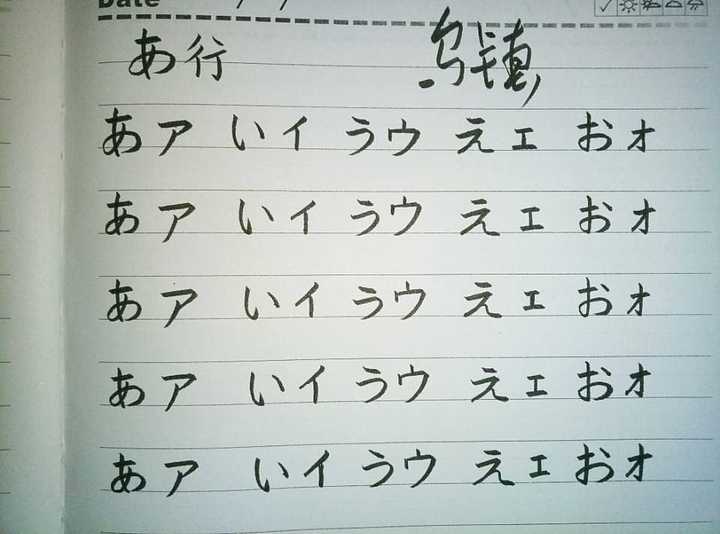 Date / /
あ行 乌镇
あア いイ うウ えエ おオ
あア いイ うウ えエ おオ
あア いイ うウ えエ おオ
あア いイ うウ えエ おオ
あア いイ うウ えエ おオ